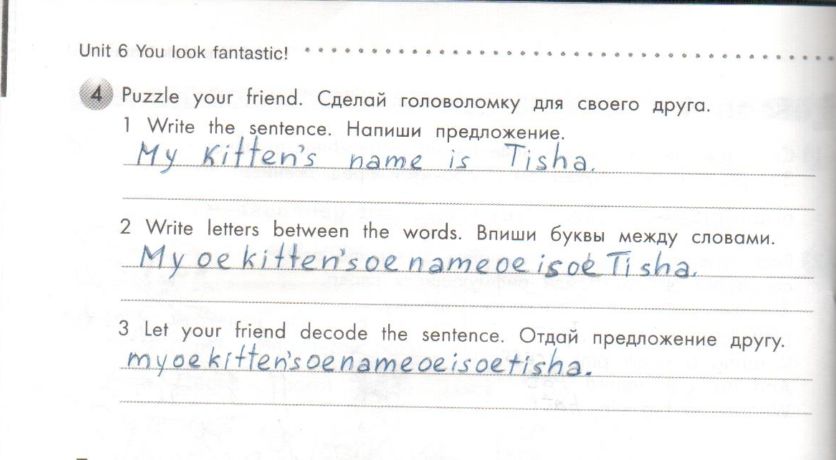 Unit 6 You look fantastic!
4 Puzzle your friend. Сделай головоломку для своего друга.
1 Write the sentence. Напиши предложение.
My kitten's name is Tisha.
2 Write letters between the words. Впиши буквы между словами.
My oe kitten's oe name oe is oe Tisha.
3 Let your friend decode the sentence. Отдай предложение другу.
myoekitten'soenameoeisoetisha.